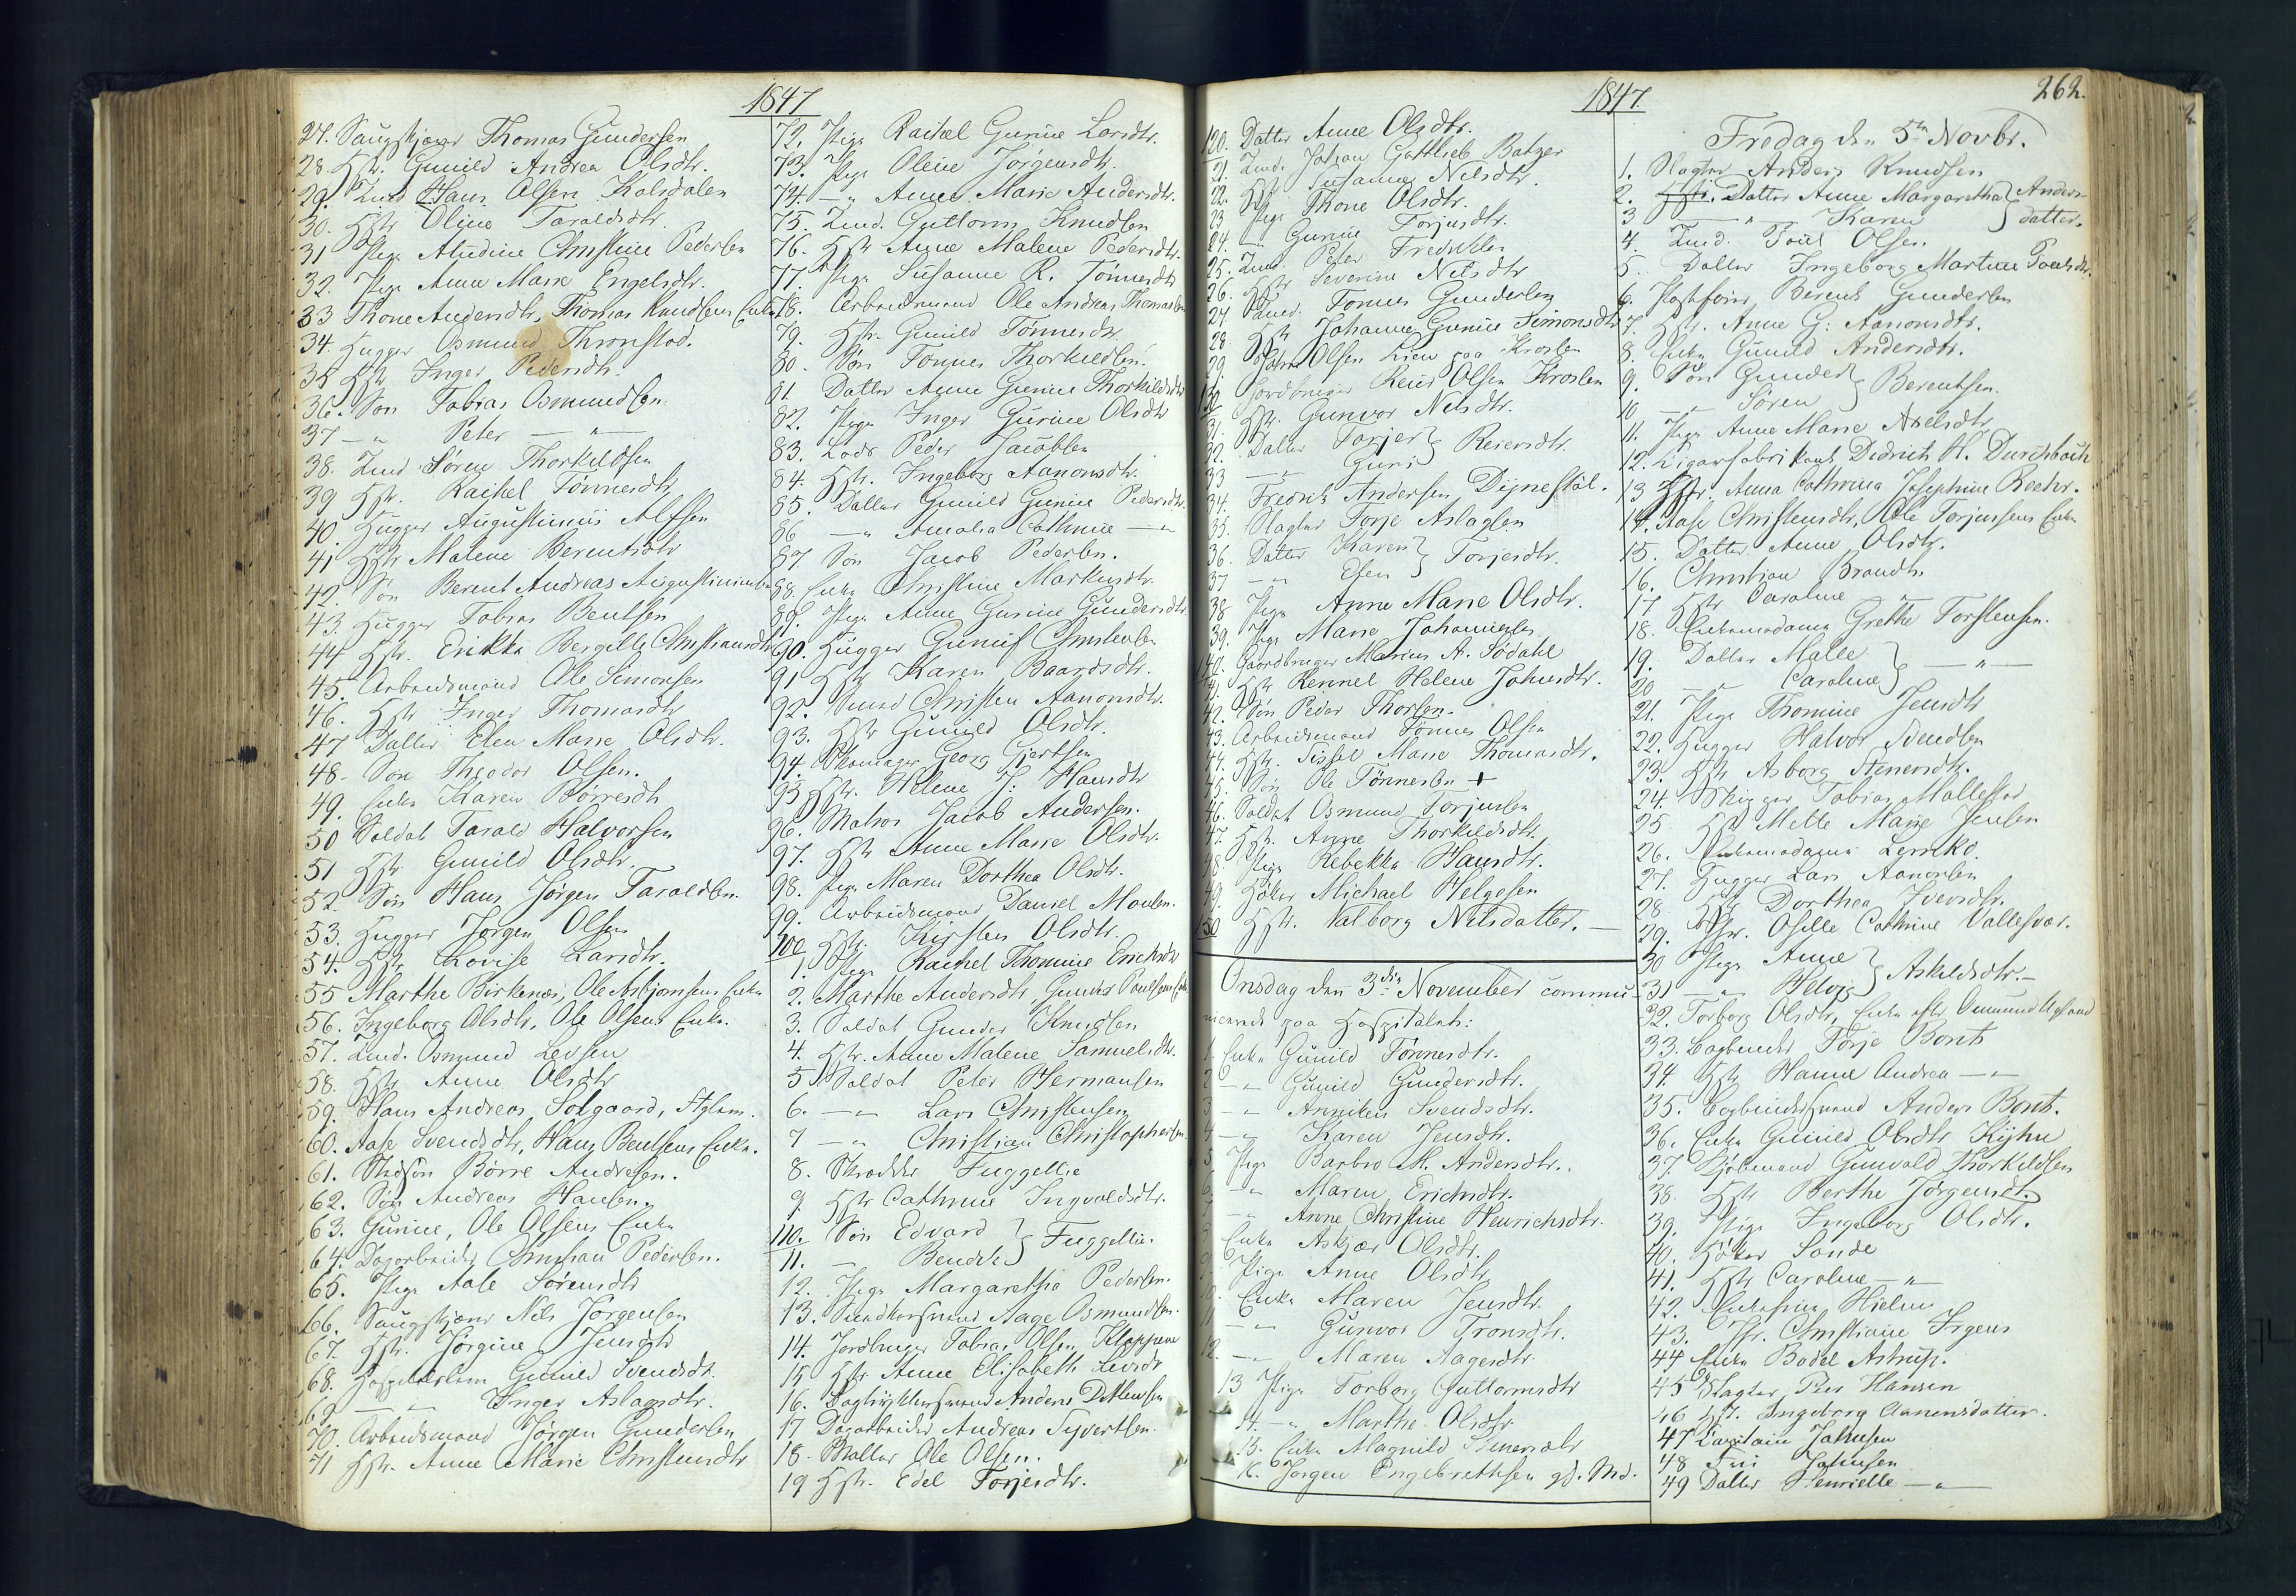 1847
27. Saugskjærer Thomas Gundersen
28. Hstr. Gunild Andrea Olsdtr.
29. Lmd Hans Olsen Kalsdalen
30. Hstr Oline Taraldsdtr.
31 Pige Aludine Christine Pedersen
32. Pige Anne Marie Engelsdtr.
33 Thone Andersdtr, Thomas Knudsens Enke
34. Hugger Osmund Thronstad.
35 Hstr Inger Pedersdtr.
36. Søn Tobias Osmundsen
37 — " Peter — " —
38. Lmd Søren Thorkildsen
39 Hstr. Rachel Tønnesdtr
40. Hugger Augustinius Alfsen
41 Hstr Malene Berentsdtr
42. Søn Berent Andreas Augustiniusen
43. Hugger Tobias Bentsen
44 Hstr. Erikka Bergitte Christiansdtr
45. Arbeidsmand Ole Simonsen
46. Hstr Inger Thomasdtr
47 Datter Elen Marie Olsdtr.
48. Søn Theodor Olsen.
49. Enke Karen Børresdtr
50 Soldat Tarald Halvorsen
51 Hstr Gunild Olsdtr.
52. Søn Hans Jørgen Taraldsen.
53. Hugger Jørgen Olsen
54. Hstr Lovise Larsdtr.
55 Marthe Birkenæs, Ole Asbjørnsens Enke
56. Ingeborg Olsdtr, Ole Olsens Enke.
57. Lmd. Osmund Levsen
58. Hstr Anne Olsdtr
59. Hans Andreas Solgaard,
60. Aase Svendsdtr, Hans Bentsens Enke.
61. Stedsøn Børre Andresen.
62. Søn Andreas Hansen.
63. Gurine, Ole Olsens Enke
64. Dagarbeider Christian Pedersen.
65. Pige Aase Sørensdtr
66. Saugskjærer Nils Jørgensen
67. Hstr. Jørgine Jensdtr
68. Hospitalslem Gunild Svendsdtr.
69 — " Inger Aslagsdtr.
70. Arbeidsmand Jørgen Gundersen
71 Hstr. Anne Marie Christensdtr
72. Pige Rachel Gurine Larsdtr.
73. Pige Oline Jørgensdtr.
74. — " Anne Marie Andersdtr.
75. Lmd. Guttorm Knudsen
76. Hstr Anne Malene Pedersdtr.
77. Pige Susanne R. Tønnesdtr
78. Arbeidsmand Ole Andreas Thomassen
79. Hstr. Gunild Tønnesdtr.
80. Søn Tønnes Thorkildsen.
81 Datter Anne Gurine Thorkildsdtr
82. Pige Inger Gurine Olsdtr
83. Lods Peder Jacobsen
84. Hstr. Ingeborg Aanonsdtr.
85. Datter Gunild Gurine Pedersdtr
86 — " Amalia Cathrine — "
87. Søn Jacob Pedersen.
88. Enke Christine Markusdtr.
89. Pige Anne Gurine Gundersdtr
90. Hugger Gunuf Christensen
91 Hstr Karen Baardsdtr.
92. Smed Christen Aanonsdtr.
93. Hstr Gunild Olsdtr.
94. Skomager Georg Gjertsen
95 Hstr. Helene J: Hansdtr
96. Matros Jacob Andersen.
97. Hstr Anne Marie Olsdtr.
98. Pige Maren Dorthea Olsdtr.
99. Arbeidsmand Daniel Monsen.
100 Hstr. Kirsten Olsdtr.
1. Pige Rachel Thomine Erichsdtr
2. Marthe Andersdtr, Gunder Poulsens Enke
3. Soldat Gunder Knudsen
4. Hstr. Anne Malene Samuelsdtr.
5 Soldat Peter Hermansen
6. — " Lars Christensen
7 — " Christian Christophersen
8. Skrædder Fuggellie
9 Hstr Cathrine Ingvaldsdtr.
110. Søn Edvard } Fuggellie.
11. — Bendik
12. Pige Margarethe Pedersen.
13. Aage Osmundsen.
14. Jordbruger Tobias Olsen Kleppene
15 Hstr Anne Elisabeth Levsdtr
16. Anders Ditlevsen
17 Dagarbeider Andreas Syvertsen.
18. Maler Ole Olsen.
19 Hstr. Edel Torjesdtr.
1847. 262.
120. Datter Anne Olsdtr.
21. Lmd. Johan Gottlieb Batzer
22. Hstr Susanne Nilsdtr.
23 Pige Thone Olsdtr.
24. — " Gurine Torjusdtr.
25. Lmd. Peter Fredriksen
26. Hstr Severine Nilsdtr
27 Smed. Tønnes Gundersen
28. Hstr Johanne Gurine Simonsdtr
29. Olsen Lien paa Kroslen
130 Jordbruger Reier Olsen Kroslen
31. Hstr. Gunvor Nilsdtr.
32. Datter Torjer } Reiersdtr.
33 — " Guri
34. Fredrik Andersen Dijnestøl.
35. Slagter Torje Aslagsen
36. Datter Karen } Torjesdtr.
37 — " Elen
38 Pige Anne Marie Olsdtr.
39. Pige Marie Johannesen
140. Gaardbruger Marius A. Sødahl
41. Hstr Rennel Helene Johnsdtr.
42. Søn Peder Thorsen.
43. Arbeidsmand Tønnes Olsen
44. Hstr. Sissel Marie Thomasdtr.
45. Søn Ole Tønnesen +
46. Soldat Osmund Torjusen
47. Hstr. Anne Thorkildsdtr.
48. Pige Rebekka Hansdtr.
49. Høker Michael Helgesen
150 Hstr. Valborg Nilsdatter. —
Onsdag den 3die November commu-
nicerede paa Hospitalet:
1. Enke Gunild Tønnesdtr.
2 — " Gunild Gundersdtr.
3 — " Anniken Svendsdtr.
4 — " Karen Jensdtr.
5 Pige Barbro M. Andersdtr.
6 — " Maren Erichsdtr.
7 — " Anne Christine Henrichsdtr.
8 Enke Askjær Olsdtr.
9. Pige Anne Olsdtr
10. Enke Maren Jensdtr.
11 — " Gunvor Tronsdtr.
12. — " Maren Aagesdtr
13 Pige Torborg Guttormsdtr
14. — " Marthe Olsdtr.
15. Enke Magnild Stenersdtr
16. Jørgen Engebrethsen gf. Md.
Fredag den 5te Novbr.
1. Slagter Anders Knudsen
2. Hstr. Datter Anne Margaretha } Anders-
3 — " Karen } datter.
4. Lmd. Poul Olsen
5. Datter Ingeborg Martine Poulsdtr.
6. Postfører Berent Gundersen
7. Hstr. Anne G: Aanonsdtr.
8. Enke Gunild Andersdtr.
9. Søn Gunder } Berentsen.
10 — " Søren
11. Pige Anne Marie Axelsdtr
12. Cigarfabrikant Didrich H. Durchbach
13 Hstr. Anna Cathrina Josephine Reeher.
14. Aase Christensdtr, Ole Torjussens Enke
15. Datter Anne Olsdtr.
16. Christian Brandt.
17 Hstr Caroline — "
18. Enkemadame Grethe Torstensen.
19. Datter Malle } — " —
20 — " Caroline
21. Pige Thomine Jensdtr
22. Hugger Halvor Svendsen
23. Hstr Asborg Stenersdtr.
24. Skipper Tobias Mollestad
25 Hstr Mette Marie Jensen
26. Enkemadame Lemko.
27. Hugger Lars Aanonsen
28 Hstr Dorthea Iversdtr.
29. Jfr. Oselle Cathrine Vallesvær.
30 Pige Anne } Askildsdtr. —
31 — " Helvig
32. Torborg Olsdtr, Enke efter Omund Ugland
33. Bogbinder Torje Bonts
34. Hstr Hanne Andrea — "
35. Bogbindersvend Anders Bont.
36. Enke Gunild Olsdtr Kyhn
37. Kjøbmand Gunvald Thorkildsen
38. Hstr Berthe Jørgensdtr.
39. Pige Ingeborg Olsdtr.
40. Høker Sonde
41. Hstr Caroline — "
42. Enkefrue Hielm
43. Jfr. Christiane Irgens
44 Enke Bodel Astrup.
45 Slagter Peer Hansen
46 Hst. Ingeborg Aanensdatter.
47 Capitain Jahnsen
48 Frue Jahnsen
49 Datter Henriette — " —